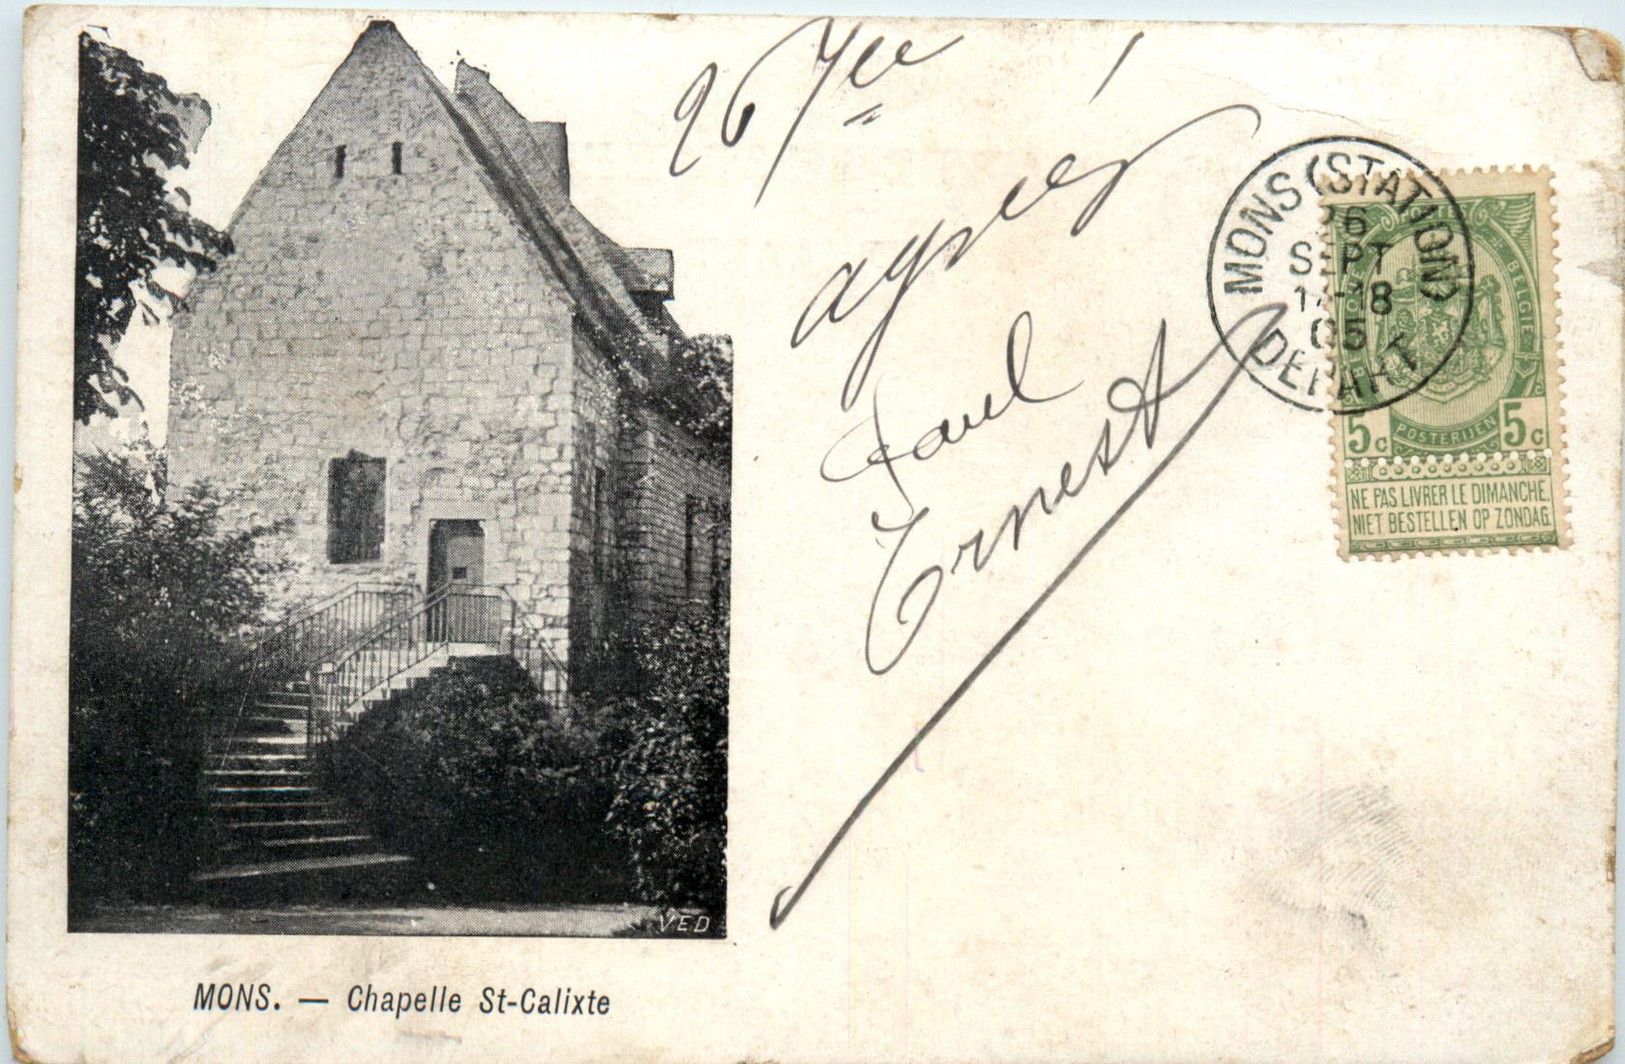 26 7bre
Paul
Ernest
MONS (STATION)
26
SEPT
17-18
05
DEPART
BELGIE
POSTERIJEN
5c 5c
NE PAS LIVRER LE DIMANCHE.
NIET BESTELLEN OP ZONDAG
VED
MONS. — Chapelle St-Calixte